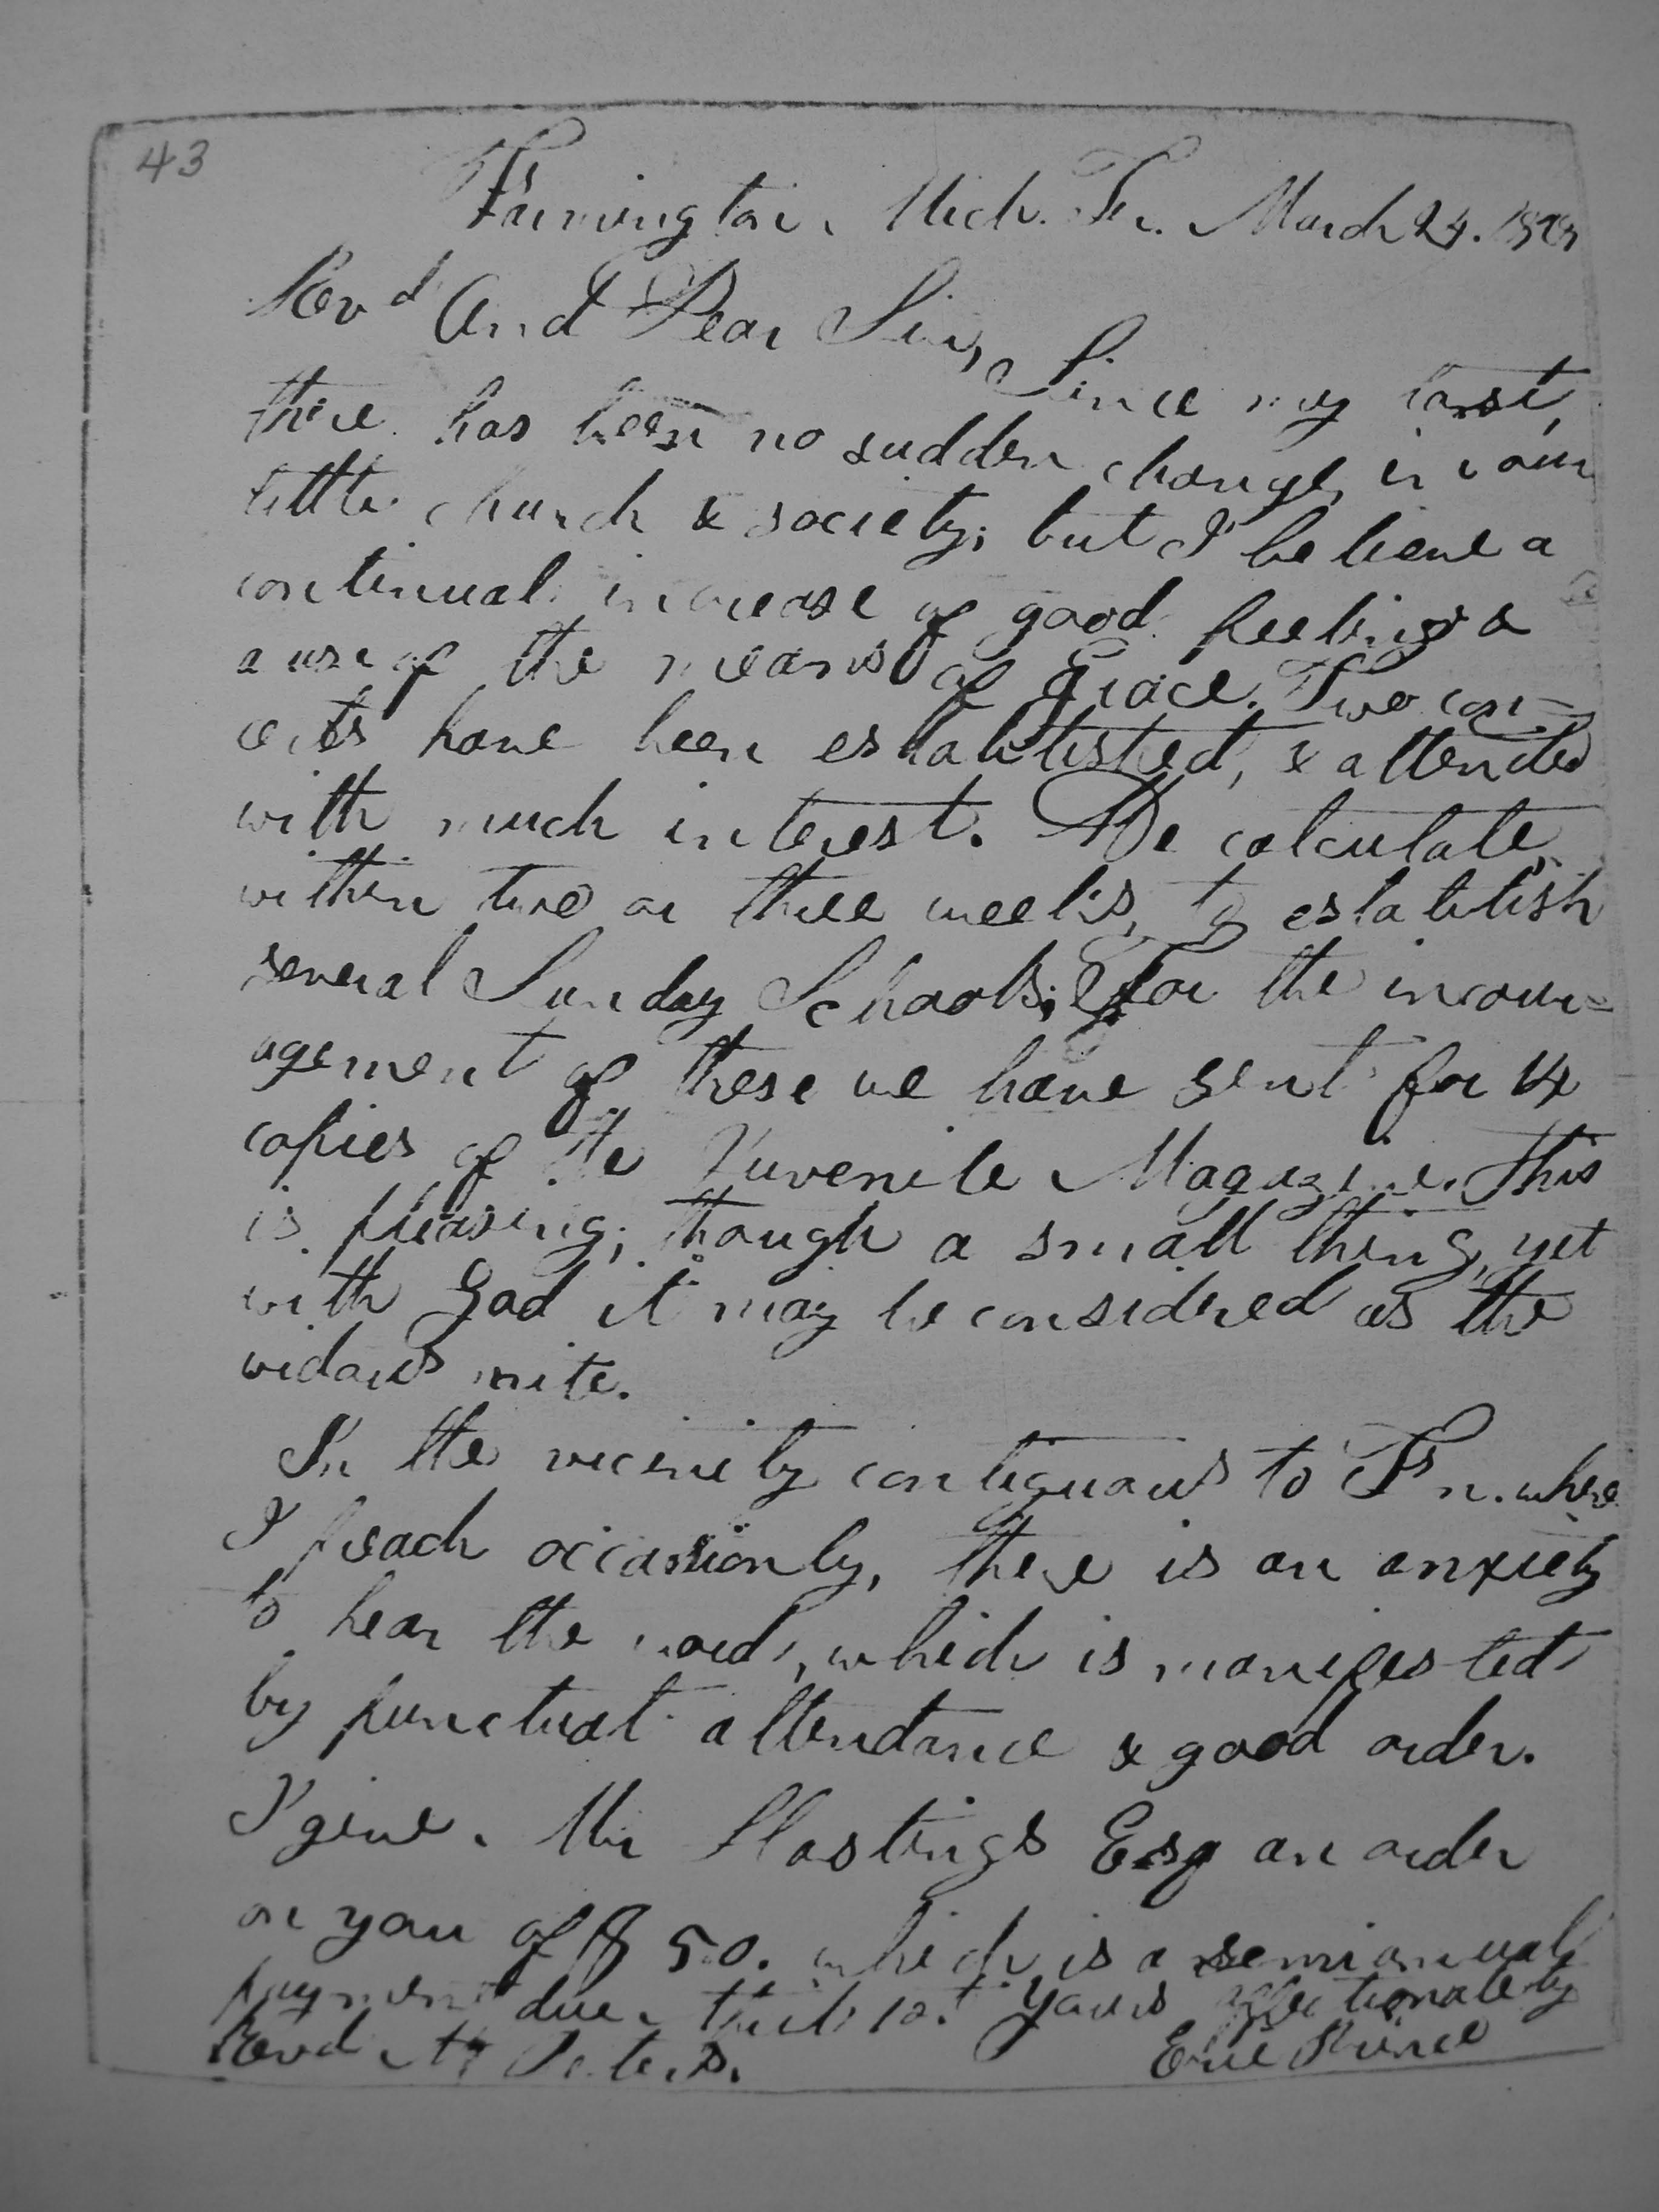 43
Farmington, Mich. Tr. March 24. 18
Revd And Dear Sir, Since my last,
there has been no sudden change in our
little church & society; but I believe a
continual increase of good feelings &
a use of the means of grace. Two con-
certs have been established, & attended
with much interest. We calculate,
within two or three weeks, to establish
several Sunday Schools; For the incour=
agement of these we have sent for 14
copies of the Juvenile Magazine. This
is pleasing; though a small thing, yet
with God it may be considered as the
widows mite.
In the vicinity contiguous to Fn. where
I preach occasionly, there is an anxiety
to hear the word, which is manifested
by punctual attendance & good order.
I give. Mr Hastings Esq an order
on you of $50. which is a semianual
payment due. Yours affectionately
Revd Peters. Eric Prince